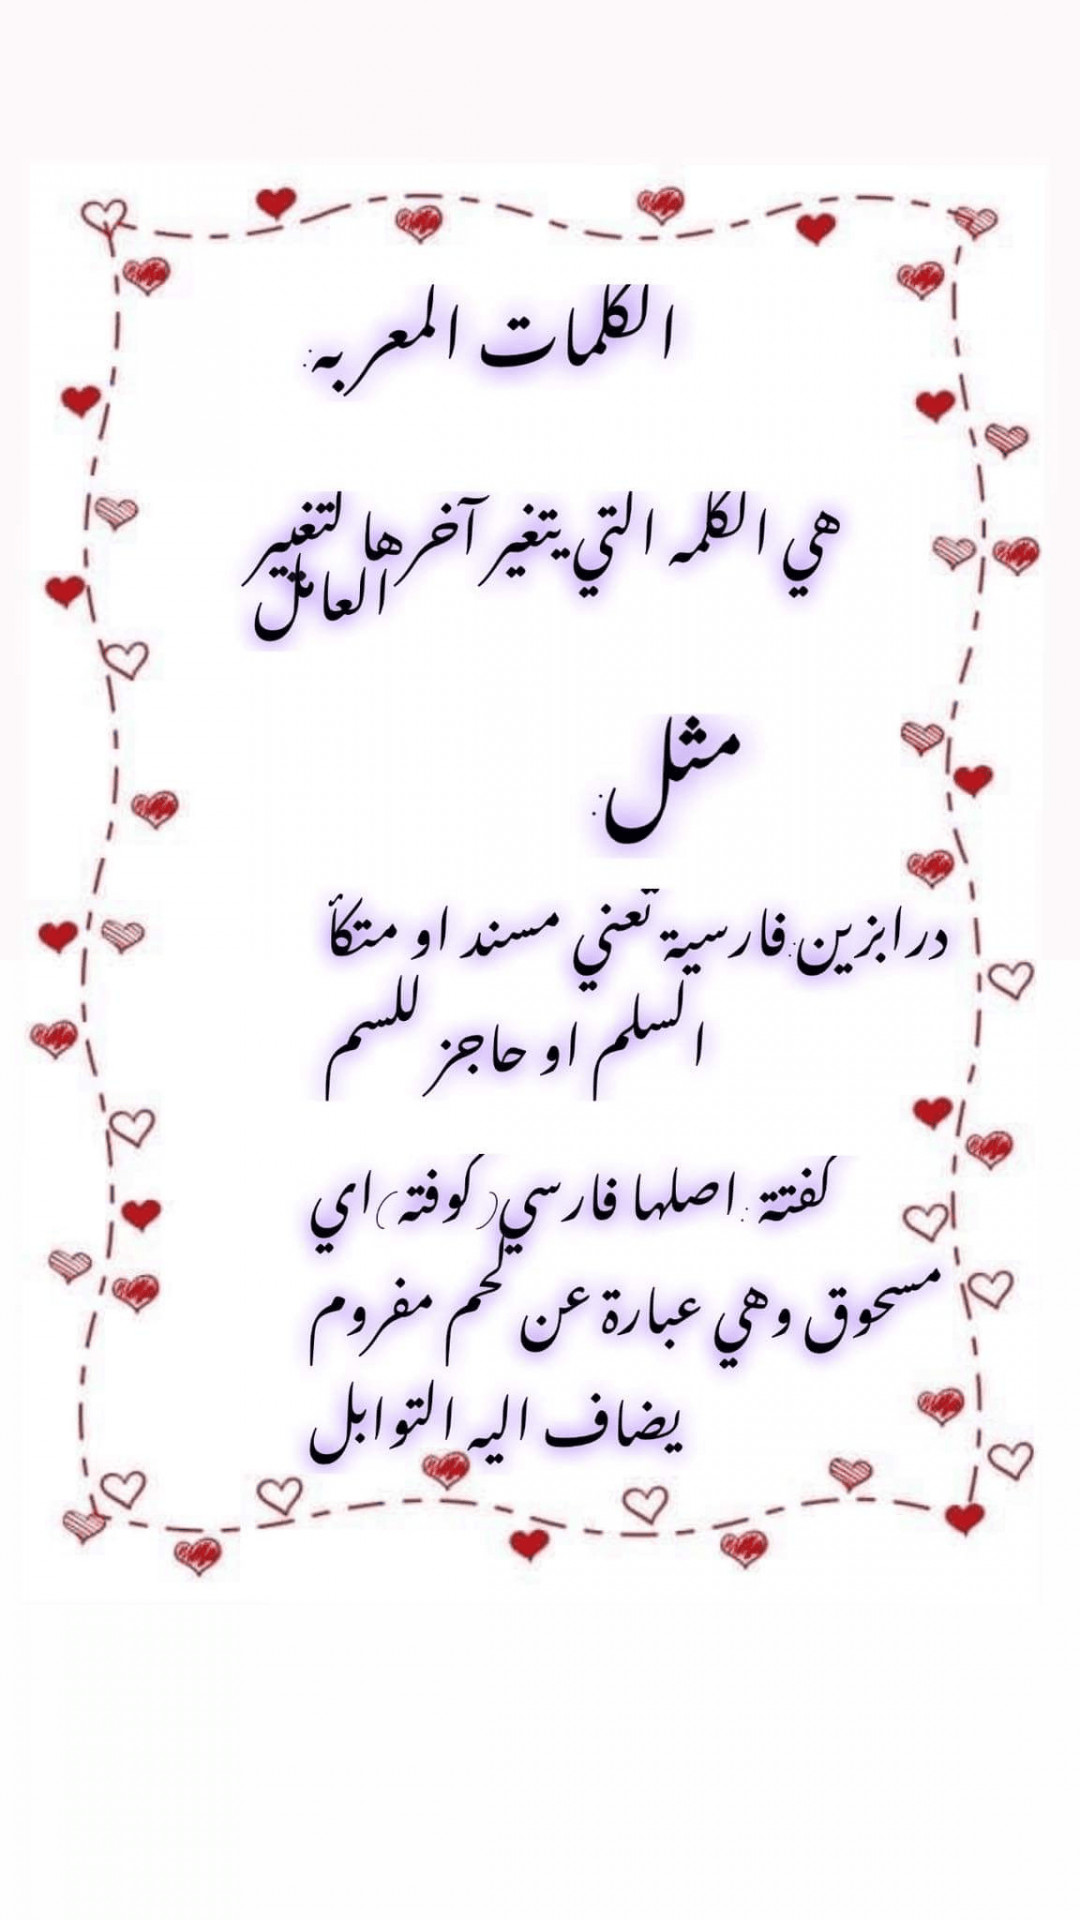 الكلمات المعربه:
هي الكلمه التي يتغير آخرها لتغيير
العامل
مثل:
درابزين:فارسية تعني مسند او متكأ
السلم او حاجز للسم
كفتة: اصلها فارسي(كوفته)اي
مسحوق وهي عبارة عن لحم مفروم
يضاف اليه التوابل